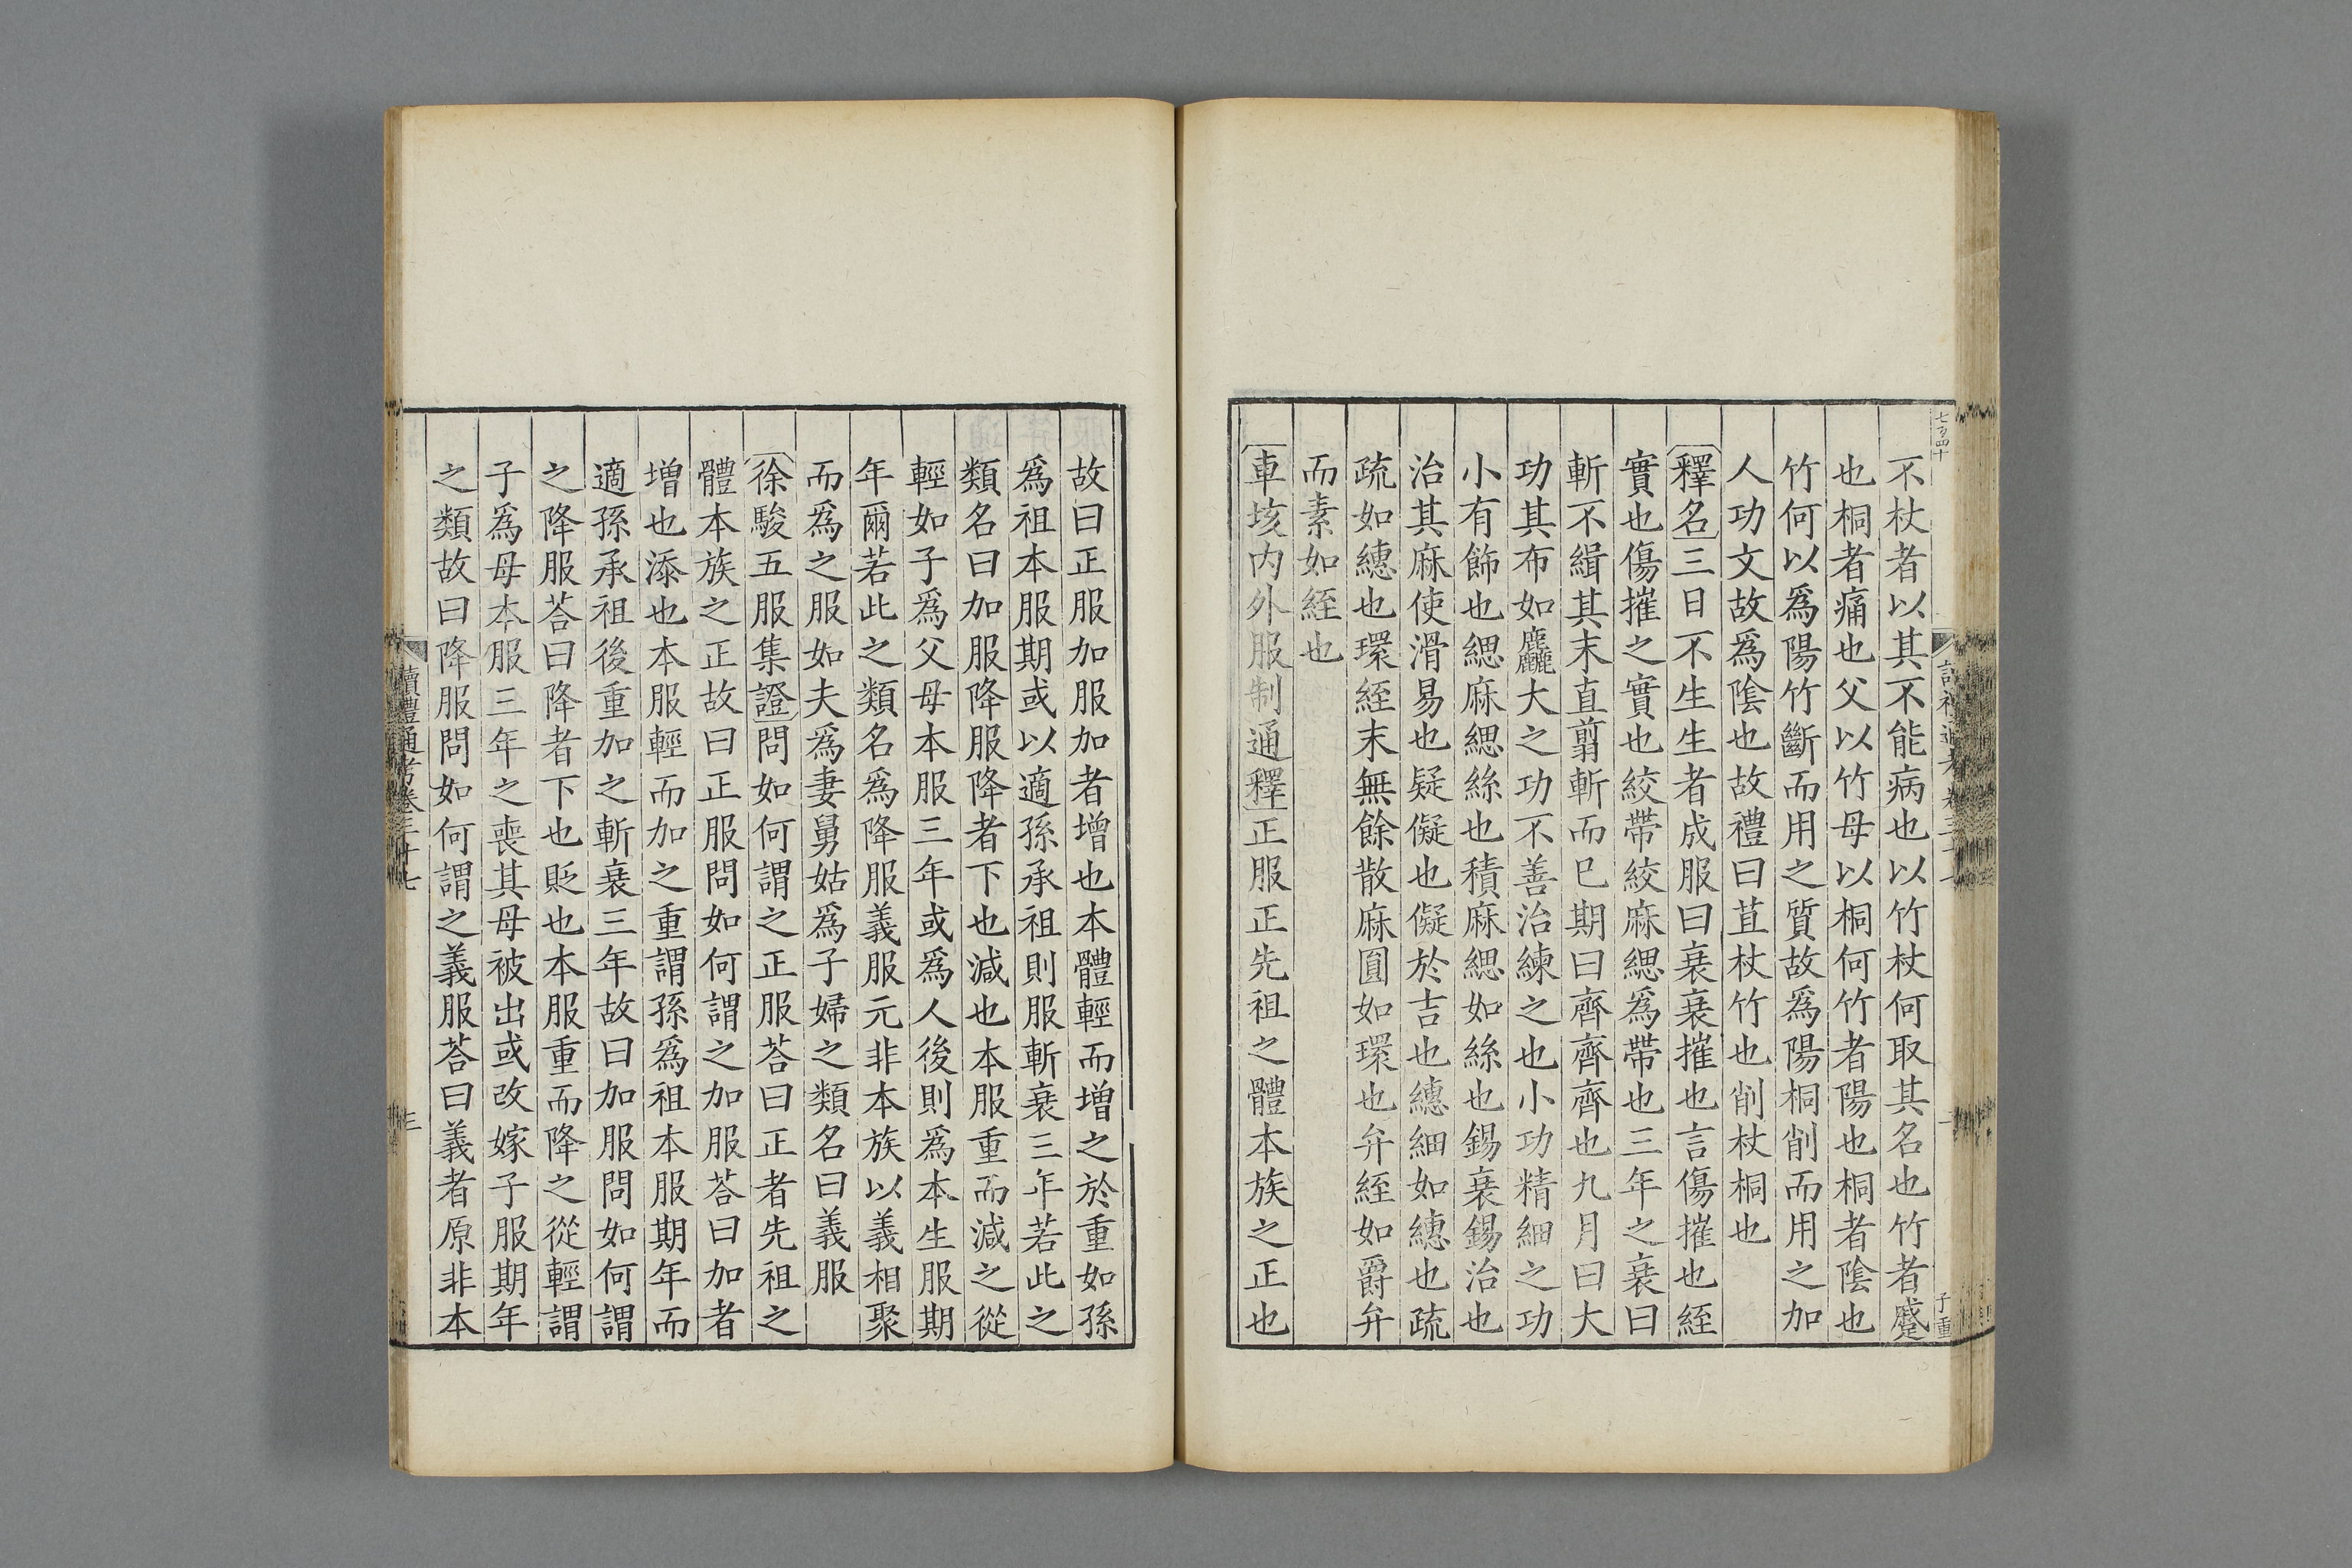 不杖者以其不能病也以竹杖何取其名也竹者蹙
也桐者痛也父以竹母以桐何竹者陽也桐者陰也
竹何以爲陽竹斷而用之質故爲陽桐削而用之加
人功文故爲陰也故禮曰苴杖竹也削杖桐也
釋名三日不生生者成服曰衰衰摧也言傷摧也絰
實也傷摧之實也絞帶絞麻緦爲帶也三年之衰曰
斬不緝其末直翦斬而已期曰齊齊齊也九月曰大
功其布如麤大之功不善治練之也小功精細之功
小有飾也緦麻緦絲也積麻緦如絲也錫衰錫治也
治其麻使滑易也疑儗也儗於吉也繐細如繐也疏
疏如繐也環絰末無餘散麻圓如環也弁絰如爵弁
而素如絰也
車垓内外服制通釋正服正先祖之體本族之正也
故曰正服加服加者增也本體輕而增之於重如孫
爲祖本服期或以適孫承祖則服斬衰三年若此之
類名曰加服降服降者下也減也本服重而減之從
輕如子爲父母本服三年或爲人後則爲本生服期
年爾若此之類名爲降服義服元非本族以義相聚
而爲之服如夫爲妻舅姑爲子婦之類名曰義服
徐駿五服集證問如何謂之正服荅曰正者先祖之
體本族之正故曰正服問如何謂之加服荅曰加者
增也添也本服輕而加之重謂孫爲祖本服期年而
適孫承祖後重加之斬衰三年故曰加服問如何謂
之降服荅曰降者下也貶也本服重而降之從輕謂
子爲母本服三年之喪其母被出或改嫁子服期年
之類故曰降服問如何謂之義服荅曰義者原非本
讀禮通考卷三十七
三